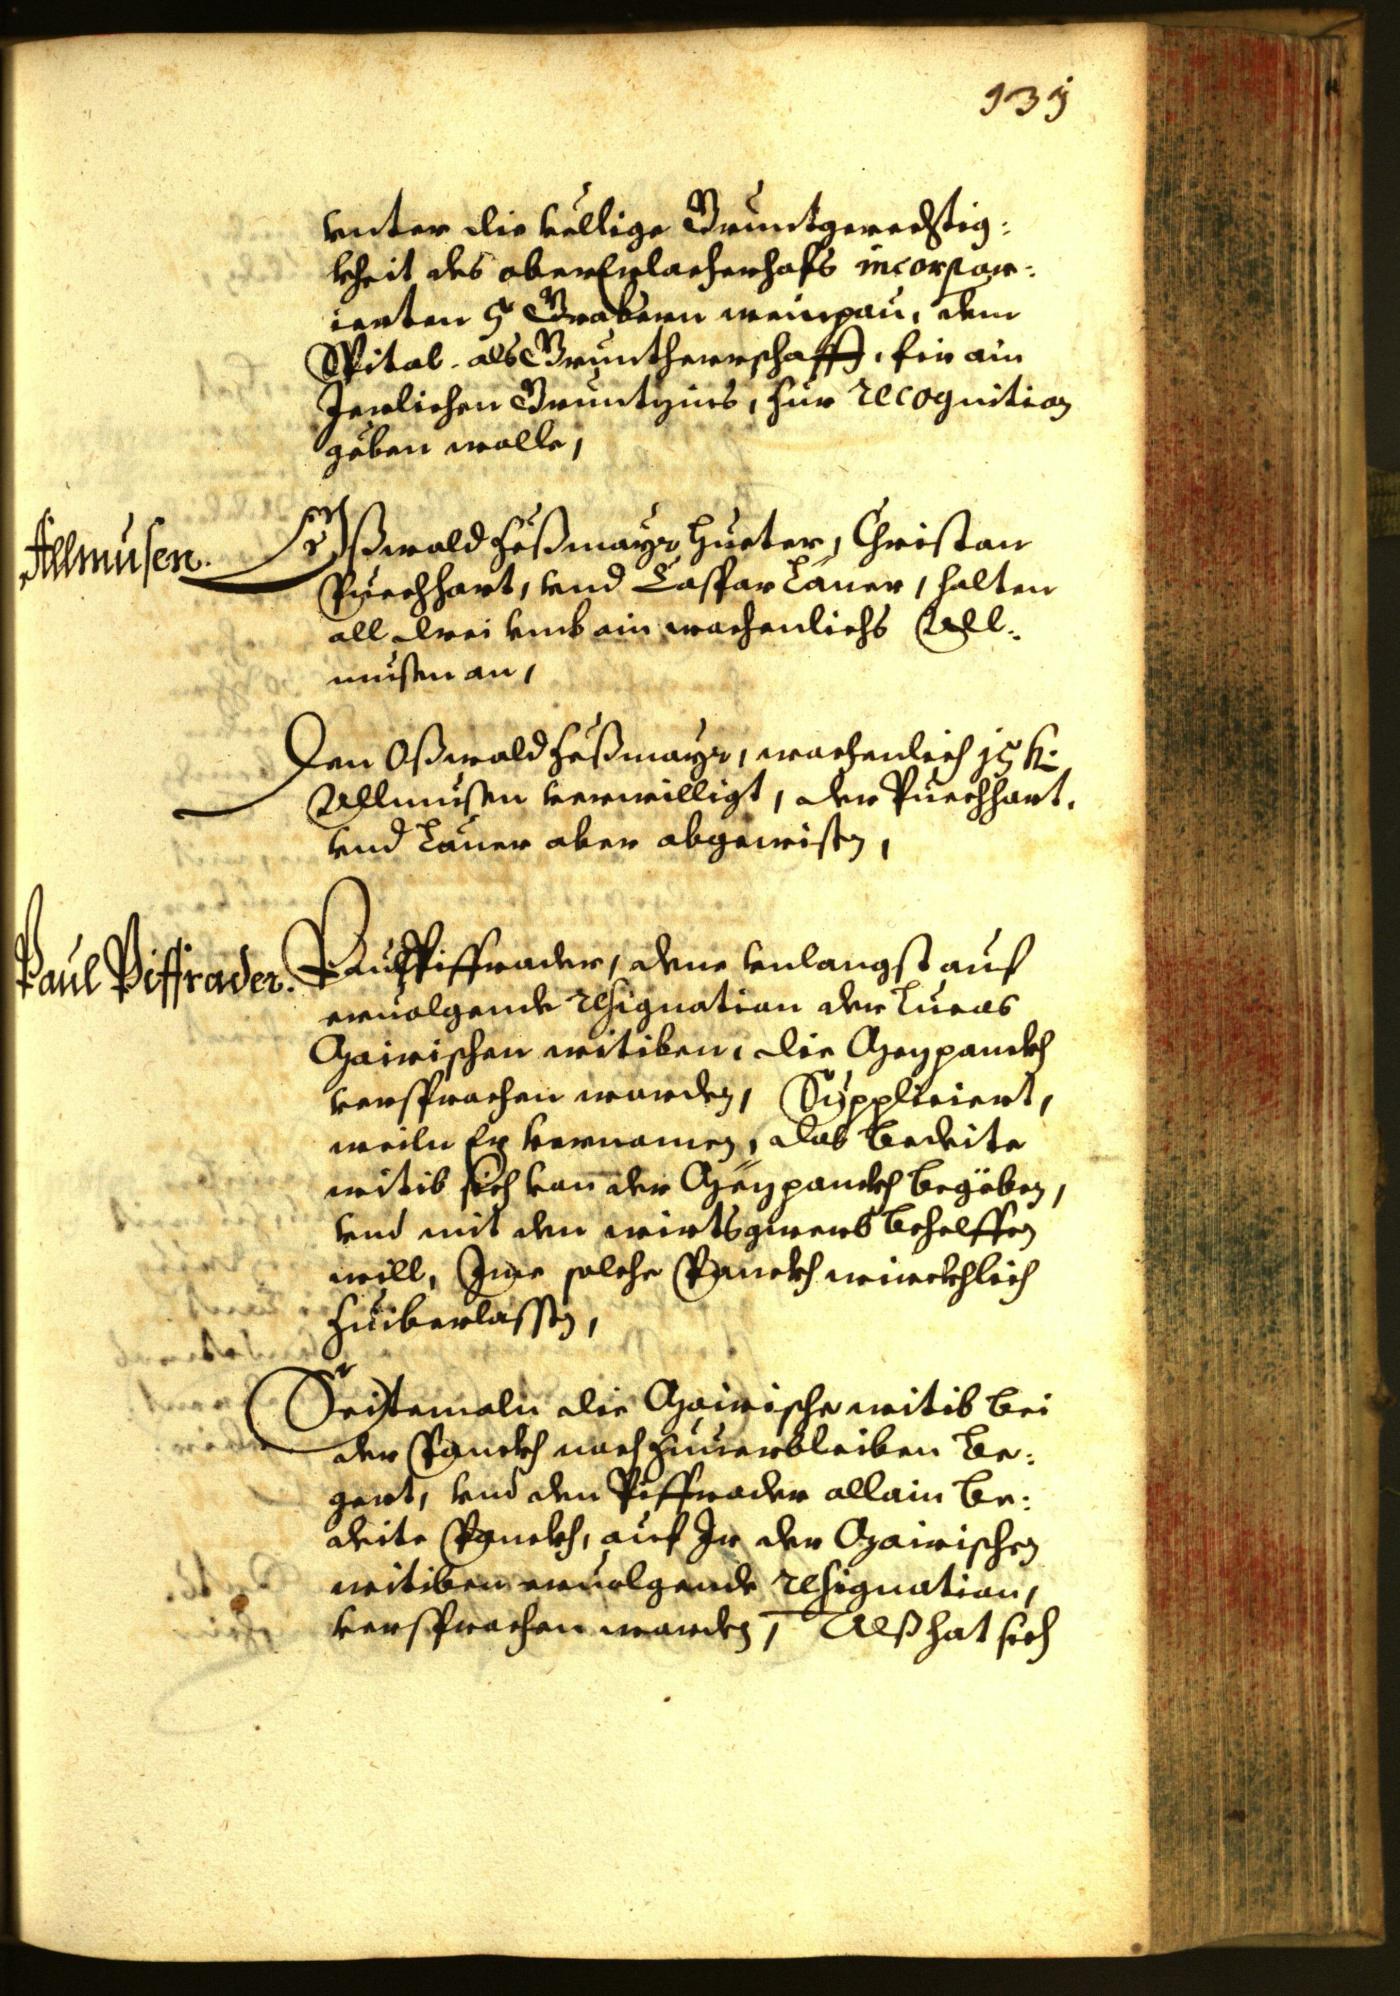 939
vnter die vellige Gruntgerechtig:
kheit des oberErlacherhofs incorpor:
ierten 5 Grabern weinpau, dem
Spital als Gruntherrschafft, fir ain
Jerlichen Gruntzins, zur recognition
geben wolle,
Allmusen.
Oßwald Heßmayr Hueter, Christan
Puechhart, vnd Caspar Lauer, halten
all drei vmb ain wochenlichs All:
musen an,
Den Oßwald Heßmayr, wochenlich 15 k:
Allmusen verwilligt, der Puechhart,
vnd Lauer aber abgewisen,
Paul Piffrader.
Paul Piffrader, deme vnlangst auf
ervolgende resignation der Lucas
Gairischen witiben, die Geypanckh
versprochen worden, Suppliciert,
weiln Er vernomen, das bedeite
witib sich von der Geypanckh begeben,
vnd mit den wirtsgwerb behelffen
will, Ime solche Panckh wirckhlich
zuiberlassen,
Seitemaln die Gairische witib bei
der Panckh noch zuuerbleiben be:
gert, vnd den Piffrader allain be:
deite Panckh, auf Ir der Gairischen
witiben ervolgende resignation,
versprochen worden, Alß hat sich